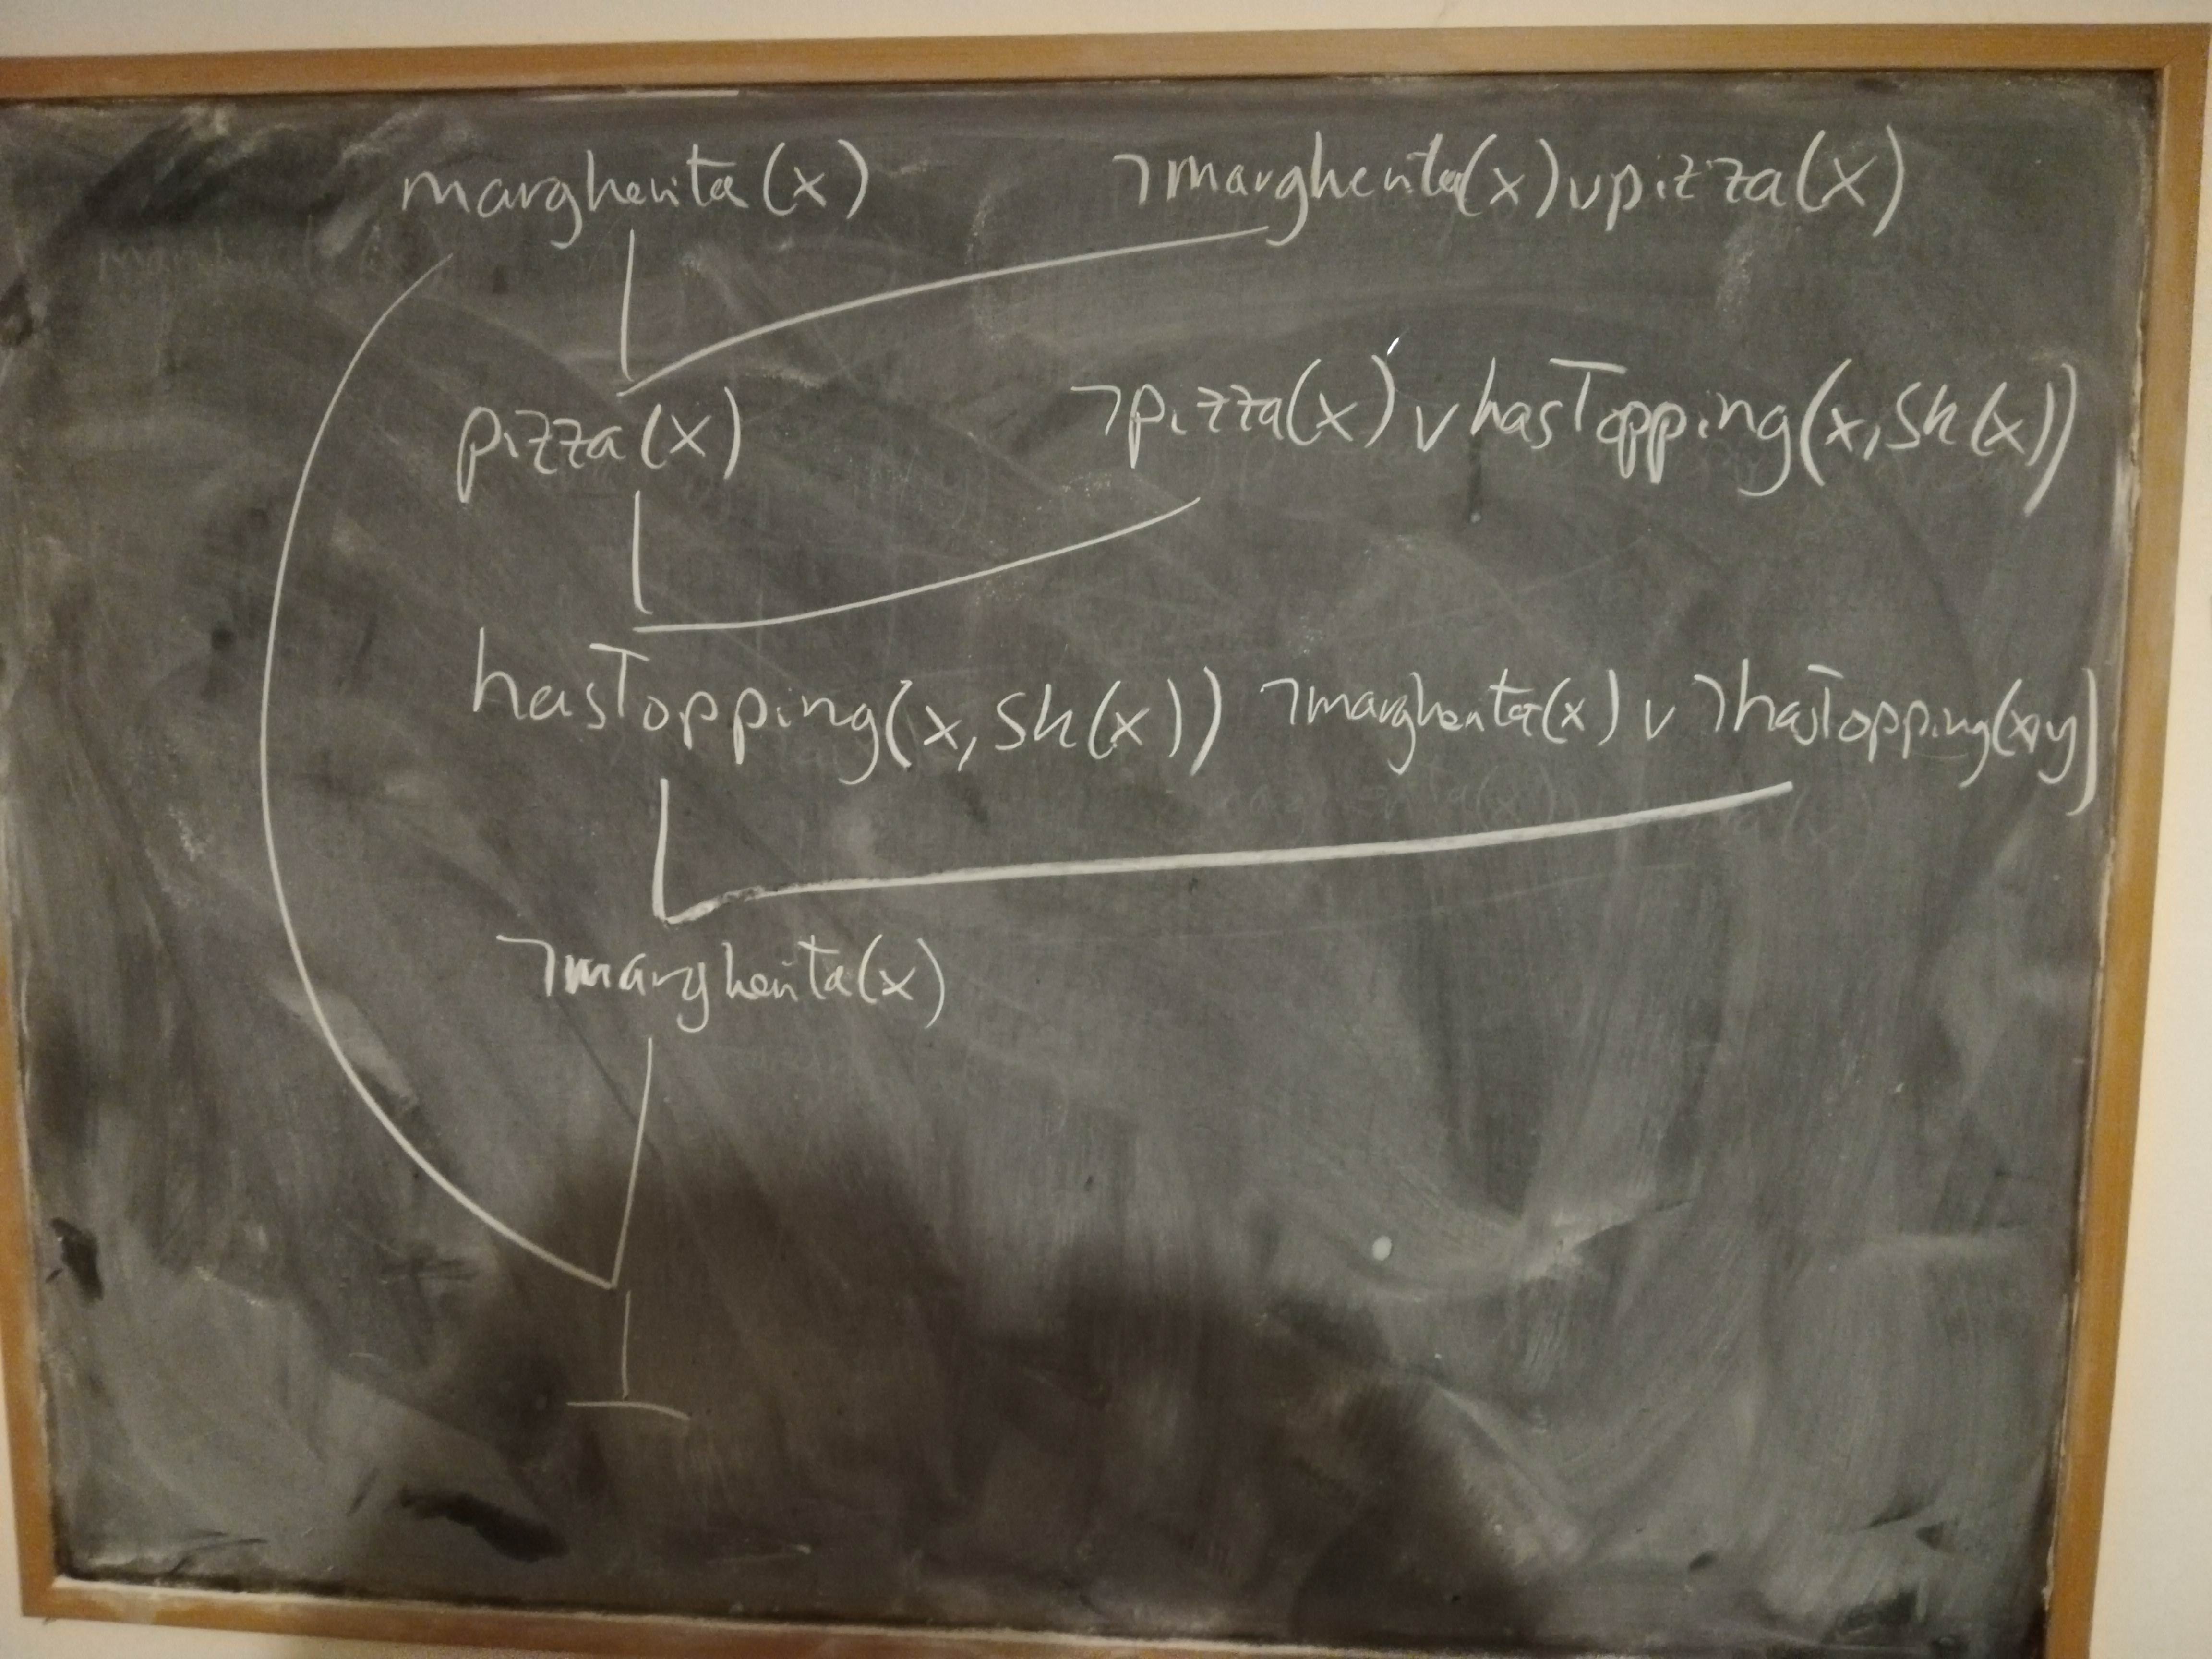 margherita(x) ¬margherita(x)∨pizza(x)
pizza(x) ¬pizza(x)∨hasTopping(x,Sk(x))
hasTopping(x,Sk(x)) ¬margherita(x)∨¬hasTopping(x,y)
¬margherita(x)
⊥